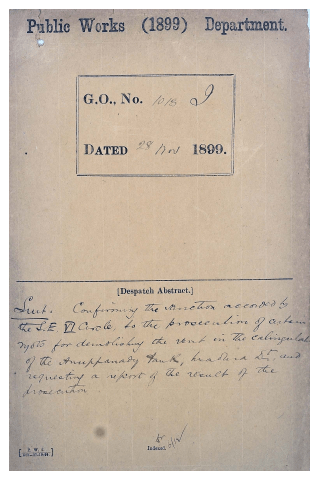 Public Works (1899) Department.
G.O., No. 1018 I
DATED 28 Nov 1899.
[Despatch Abstract.]
Confirming the sanction accorded by
the S.E. VI Circle, to the prosecution of certain
ryots for demolishing the vent in the
of the Anuppanady Tank, Madura Dt. and
requesting a report of the result of the
prosecution
Indexed.